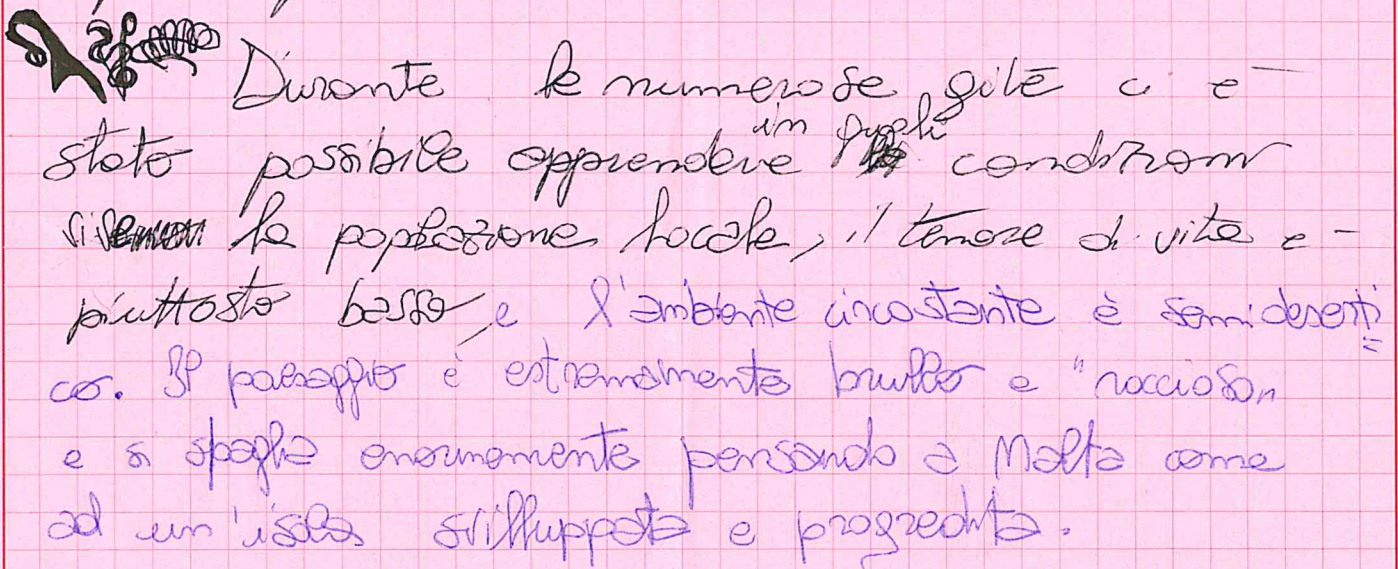 Durante le numerose gite ci è
stato possibile apprendere in quali condizioni
la popolazione locale, il tenore di vita è
piuttosto basso, e l'ambiente circostante è semideserti=
co. Il paesaggio è estremamente brullo e "roccioso"
e si sbaglia enormemente pensando a Malta come
ad un'isola svilluppata e progredita.